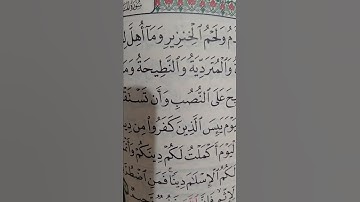 دم ولحم الخنزير وما أهل ل
ة والمتردية والنطيحة وم
بح على النصب وأن تستق
يوم يئس الذين كفروا من د
ليوم أكملت لكم دينكم وأت
لكم الإسلام دينا فمن اضطر